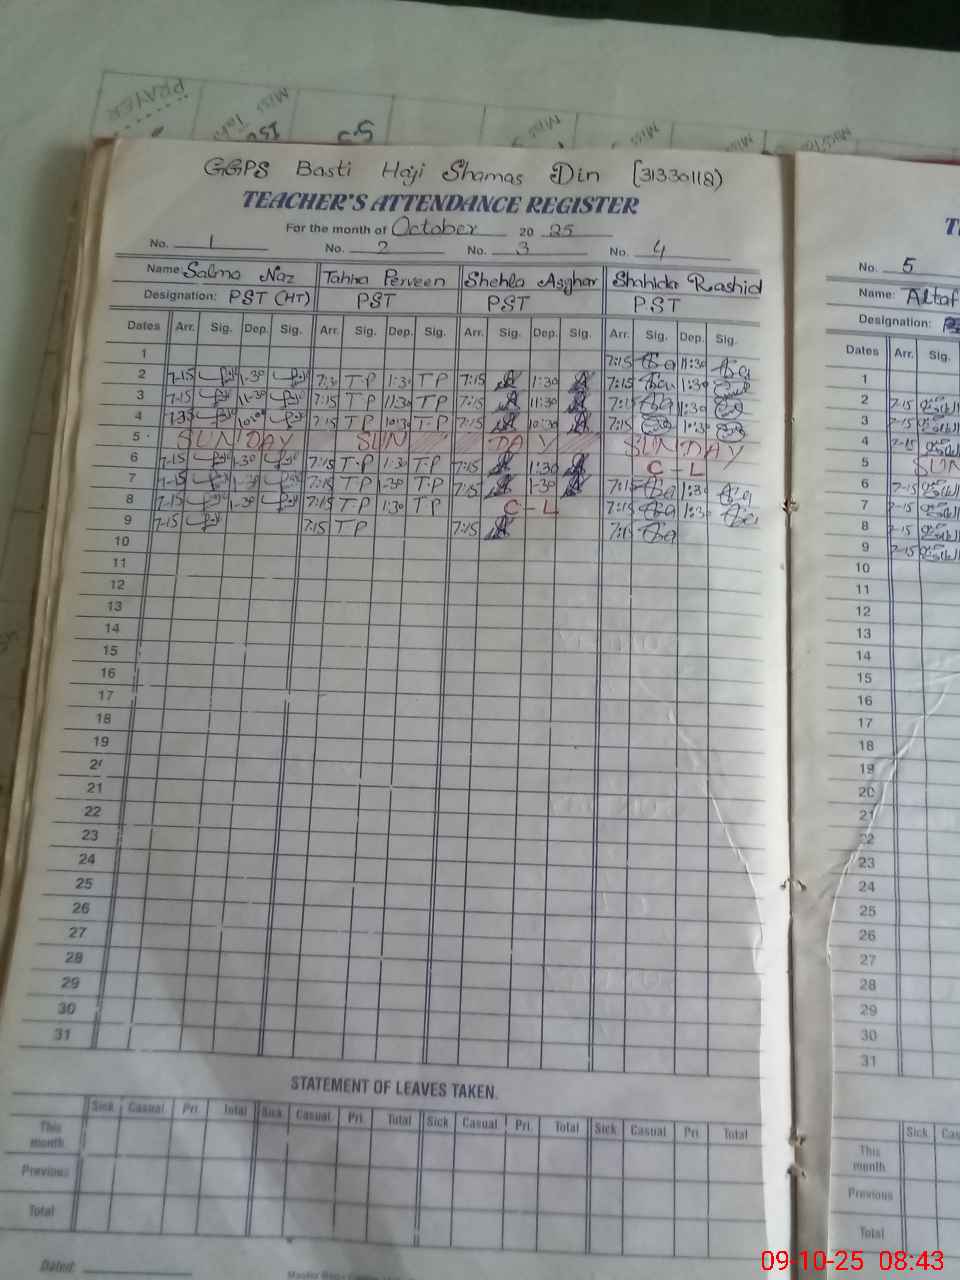 PRAYER
Miss
Miss
Miss
GGPS Basti Haji Shamas Din (31330118)
TEACHER'S ATTENDANCE REGISTER
For the month of October 20 25
No. 1 No. 2 No. 3 No. 4
No. 5
Name: Salma Naz Tahira Perveen Shehla Asghar Shahida Rashid
Name: Altaf
Designation: PST (HT) PST PST P.S.T
Designation:
Dates Arr. Sig. Dep. Sig. Arr. Sig. Dep. Sig. Arr. Sig. Dep. Sig. Arr. Sig. Dep. Sig.
Dates Arr. Sig.
1 7:15 11:30
2 7-15 1-30 T-P 1:30 TP 7:15 1:30 7:15 1:30
3 7-15 11-30 7:15 TP 11:30 TP 7:15 11:30 7:15 11:30
4 7:15 TP 10:30 T-P 7:15 10:30 7:15 10:30
5 SUNDAY SUN DAY SUNDAY
6 7-15 1-30 7:15 T-P 1:30 T-P 7:15 1:30 C-L
7 7-15 1-30 7:15 TP 1-30 T-P 7:15 1-30 7:15 1:30
8 7-15 1-30 7:15 TP 1:30 TP C-L 7:15 1:30
9 7-15 7:15 TP 7:15 7:15
10
11
12
13
14
15
16
17
18
19
2
21
22
23
24
25
26
27
28
29
30
31
1
2 7-15
3 7-15
4 7-15
5 SUN
6 7-15
7 7-15
8 7-15
9 7-15
10
11
12
13
14
15
16
17
18
19
20
21
22
23
24
25
26
27
28
29
30
31
STATEMENT OF LEAVES TAKEN.
Sick Casual Pri. Total Sick Casual Pri. Total Sick Casual Pri. Total Sick Casual Pri. Total
This month
Previous
Total
Dated:
Sick
This month
Previous
Total
09-10-25 08:43